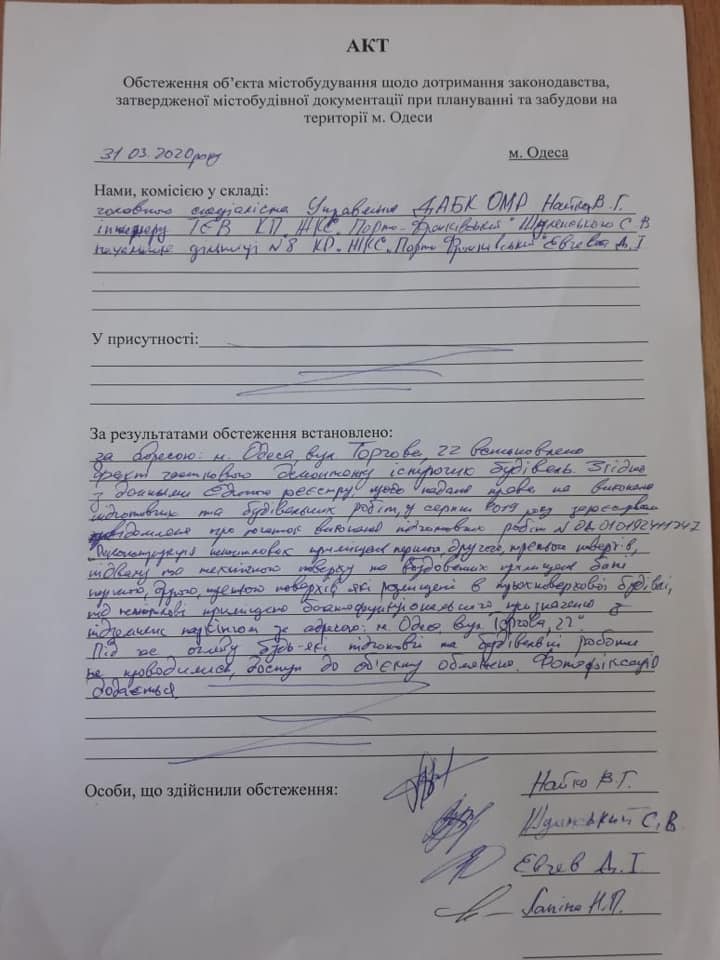 АКТ
Обстеження об’єкта містобудування щодо дотримання законодавства,
затвердженої містобудівної документації при плануванні та забудови на
території м. Одеси
31 03. 2020 року
м. Одеса
Нами, комісією у складі:
головного спеціаліста Управління ДАБК ОМР Найко В. Г.
КП. ЖКС. Порто-Франківський" С. В
дільниці №8 КП. ЖКС. Порто Франківський" Евчев Д. І
У присутності:
За результатами обстеження встановлено:
за адресою: м. Одеса, вул. Торгова, 22 встановлено
факт часткового демонтажу будівель. Згідно
з данними Єдиного реєстру, щодо надання права на виконання
підготовчих та будівельних робіт, у серпні 2019 року
повідомлення про початок виконання підготовчих робіт
Реконструкція приміщень першого, другого, третього поверхів,
підвалу та технічного поверху та приміщень бані
першого, другого, третього поверхів які розміщені в будівлі,
під приміщення багатофункціонального призначення з
підземним паркінгом за адресою: м. Одеса, вул. Торгова, 22".
Під час огляду будь-які підготовчі та будівельні роботи
не проводились, доступ до об'єкту обмежено. Фотофіксація
додається.
Особи, що здійснили обстеження:
Найко В. Г.
С. В.
Евчев Д. І
Лапіна Н. П.